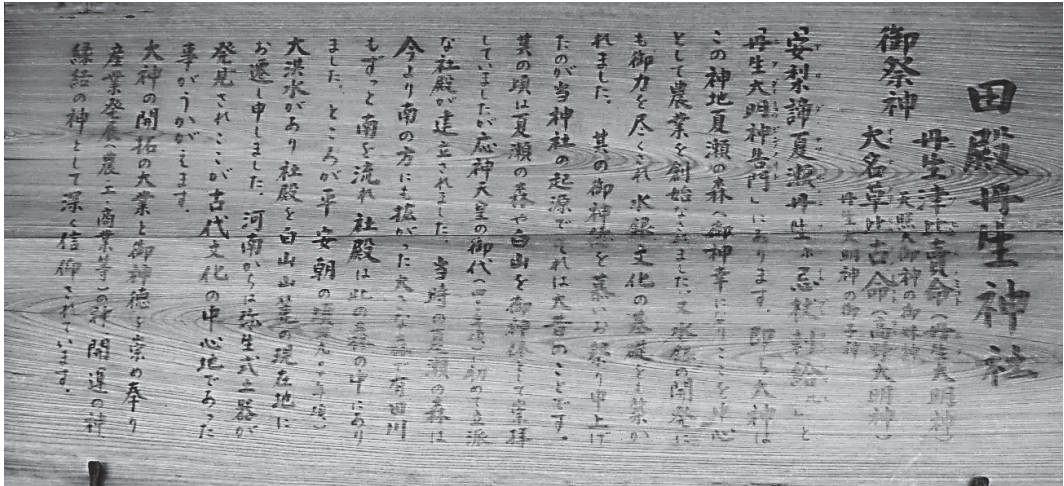 田殿丹生神社
御祭神
丹生津比賣命(丹生大明神)
天照大御神の御妹神
大名草比古命(高野大明神)
丹生大明神の御子神
「安梨諦夏瀬丹生 忌杖刺給 」と
「丹生大明神告門」にあります。即ち大神は
この神地夏瀬の森へ御神幸になりここを中心
として農業を創始なされました。又水銀の開発に
も御力を尽くされ水銀文化の基礎をも築か
れました。其の御神徳を慕いお祭り申上げ
たのが当神社の起源でそれは大昔のことです。
其の頃は夏瀬の森や白山を御神体として崇拝
していましたが応神天皇の御代( )に初めて立派
な社殿が建立されました。当時の夏瀬の森は
今より南の方にも拡がった大きな森で有田川
もずっと南を流れ社殿は此の森の中にあり
ました。ところが平安朝の
大洪水があり社殿を白山山麓の現在地に
お遷し申しました。河南からは弥生式土器が
発見されここが古代文化の中心地であった
事がうかがえます。
大神の開拓の大業と御神徳を崇め奉り
産業発展(農・工・商業等)の神 開運の神
縁結の神として深く信仰されています。